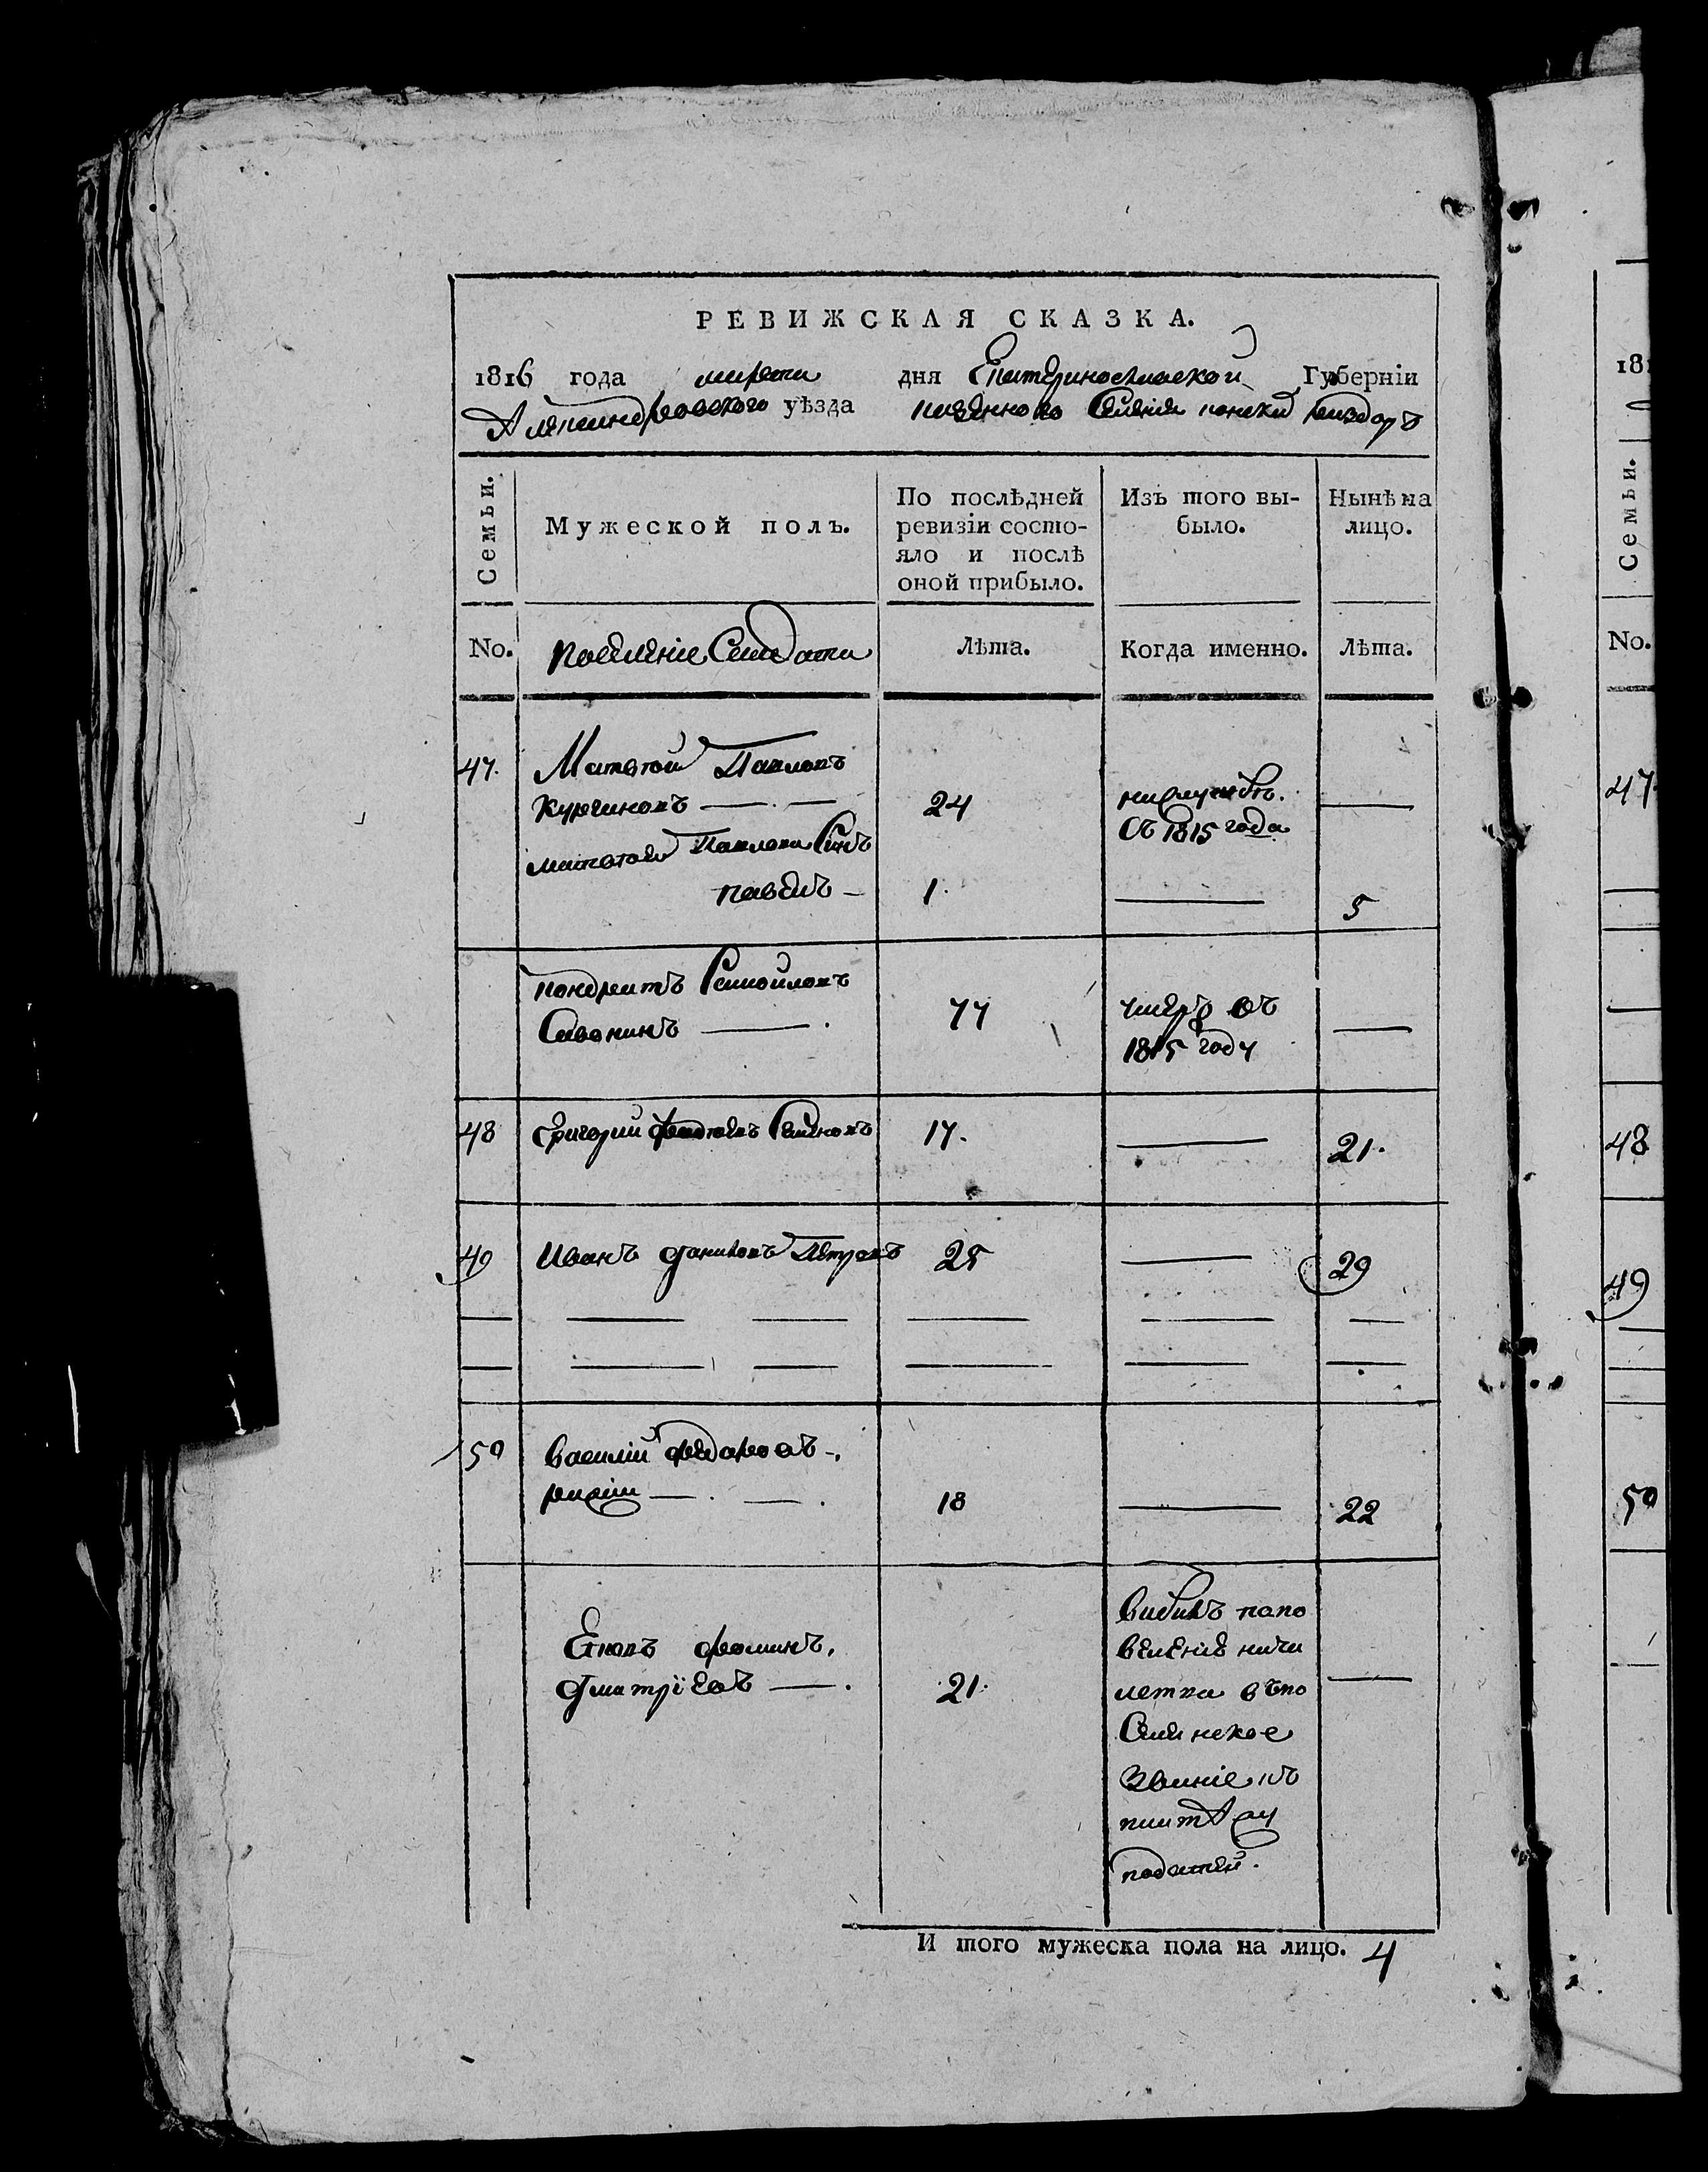 РЕВИЖСКАЯ СКАЗКА.
1816 года марта дня Екатеринославской Губерніи
Александровского уѣзда казенного Селенія конски роздоръ
Семьи.
Мужеской полъ.
По послѣдней ревизіи состояло и послѣ оной прибыло.
Изъ того выбыло.
Нынѣ на лицо.
No.
Лѣта.
Когда именно.
Лѣта.
47. Матвей Павловъ
Курчиновъ 24
Съ 1815 года
Матвея Павлова Сынъ
павелъ 1. 5
кондратъ Самойловъ
Савонинъ 77 умеръ въ
1815 году
48 Григории 17. 21.
49 Иванъ даниловъ Петровъ 25 29
50 василій федоровъ
18 22
фоминъ,
дмитріевъ 21.
звание
податей.
И того мужеска пола на лицо. 4
181
Семьи.
No.
47
48
49
50